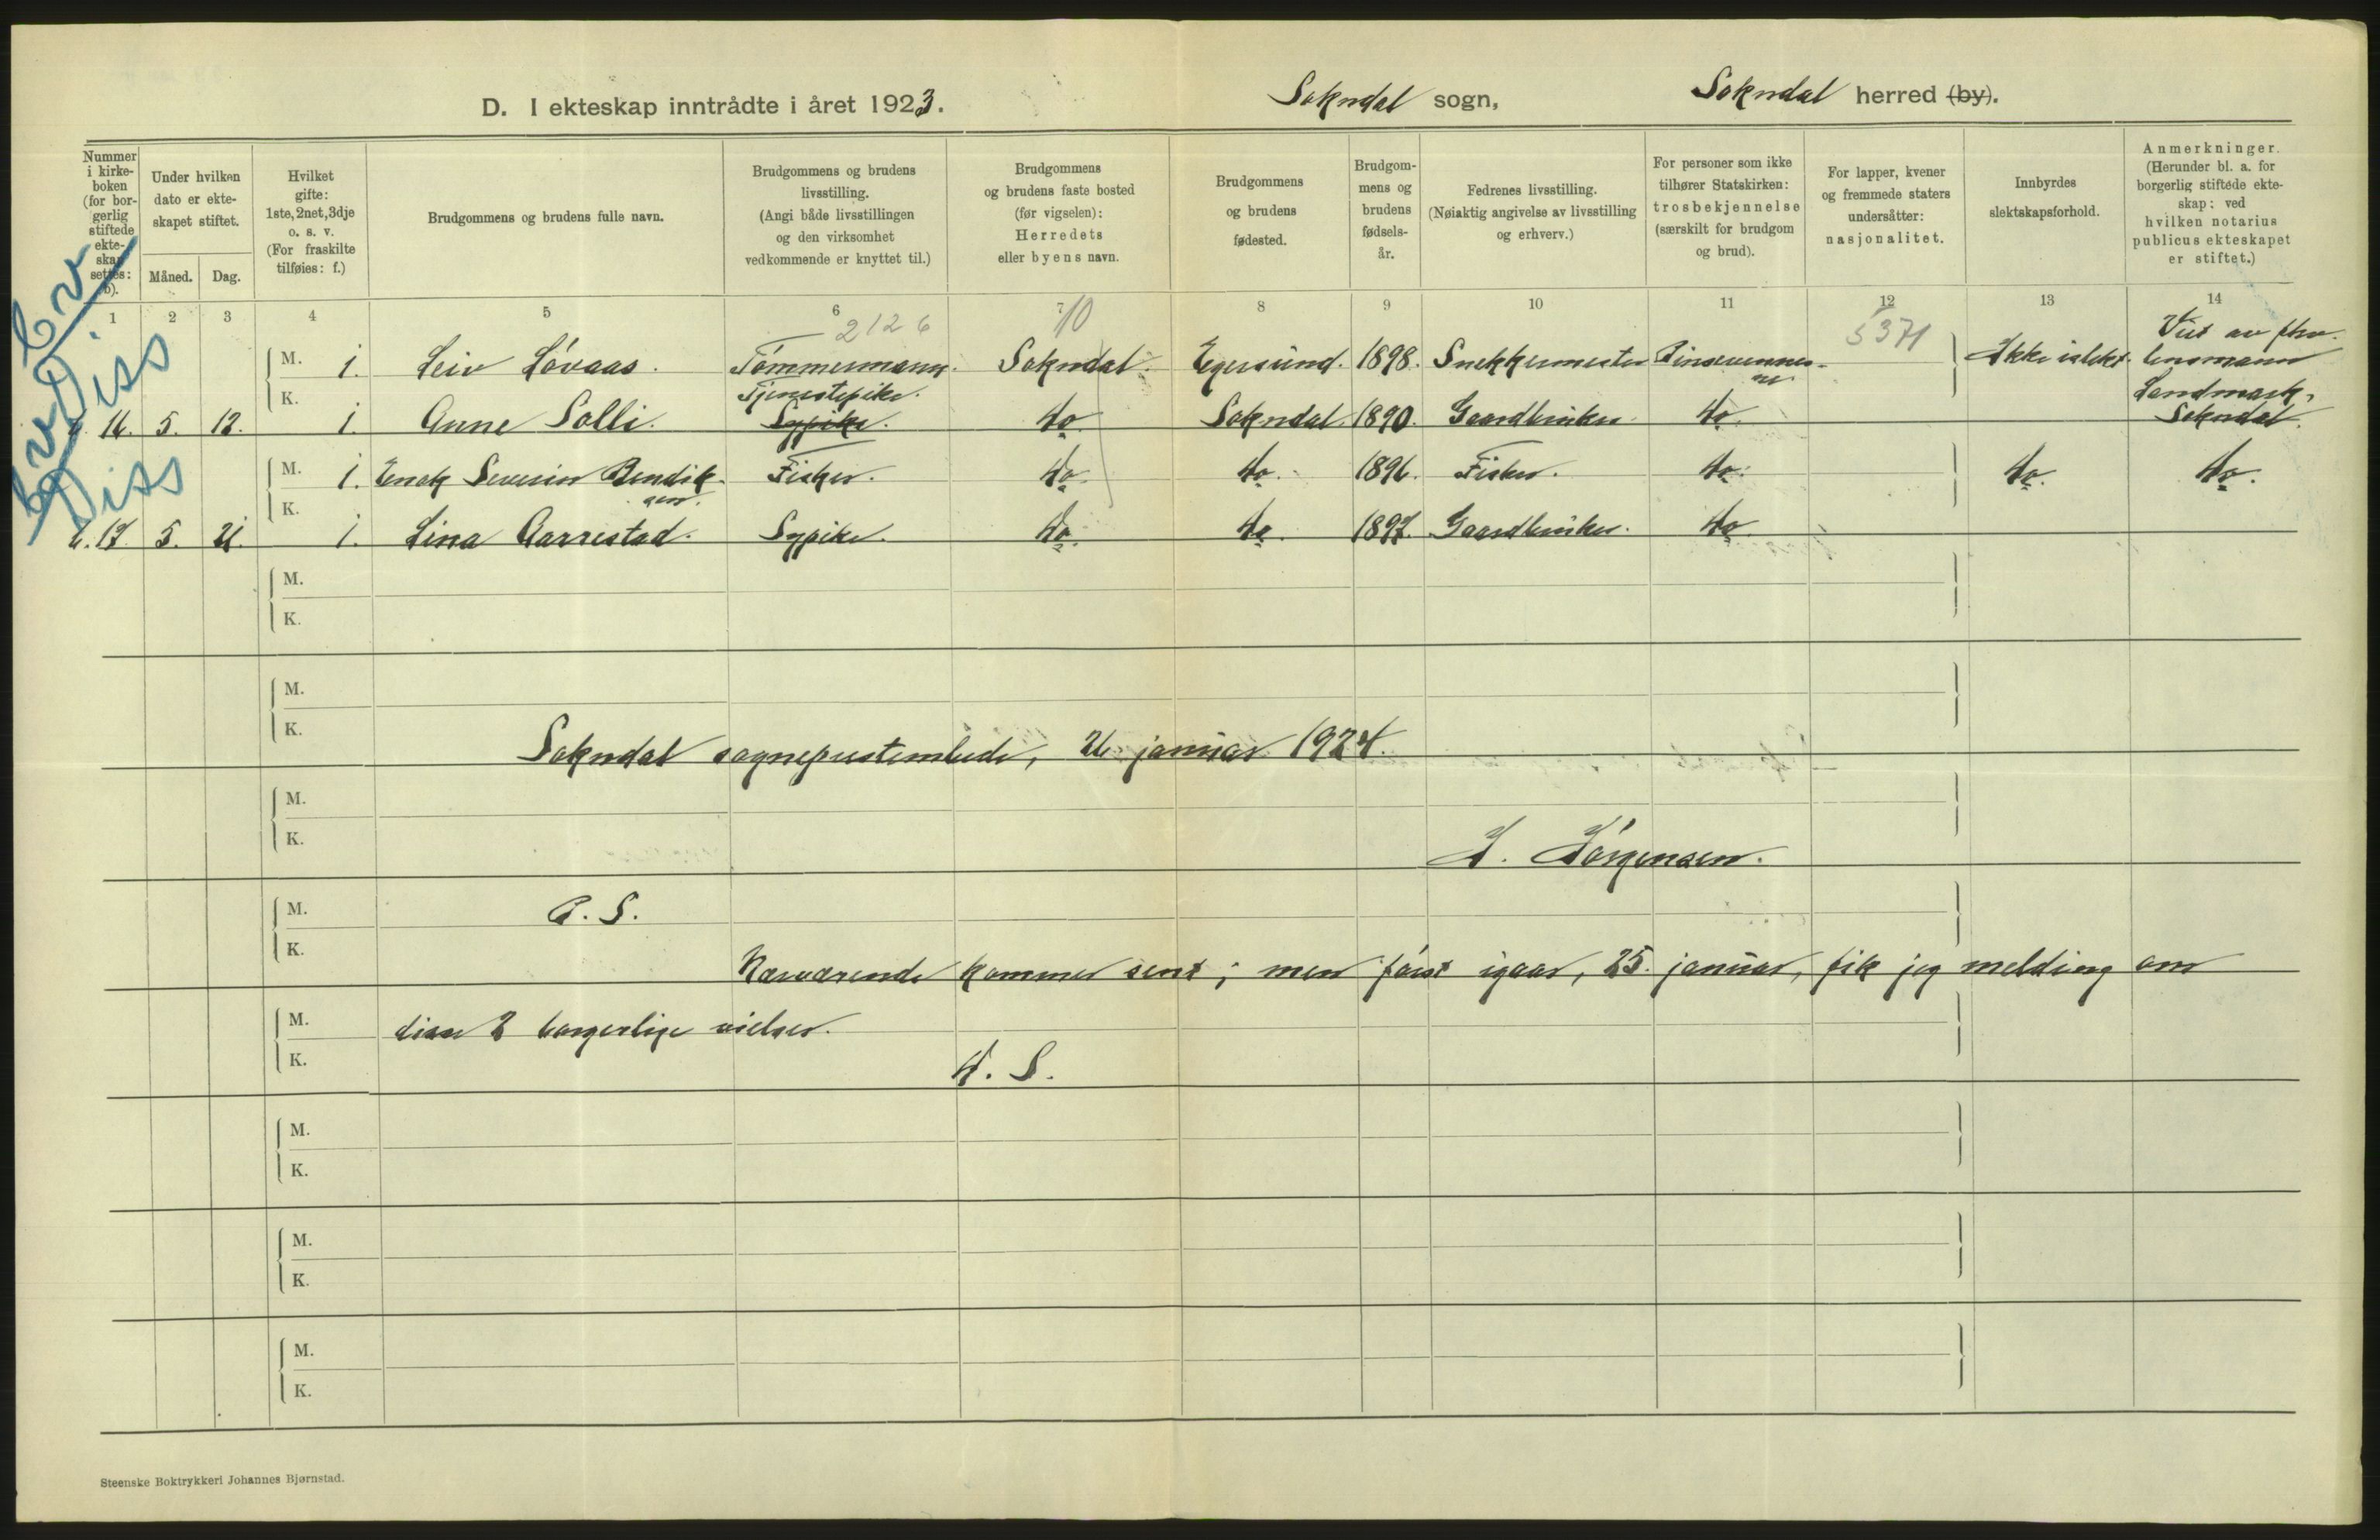 D. I ekteskap inntrådte i året 1923. Sokndal sogn, Sokndal herred (by).
Nummer i kirkeboken (for borgerlig stiftede ekteskap settes: b).
Under hvilken dato er ekteskapet stiftet.
Måned. Dag.
Hvilket gifte: 1ste, 2net, 3dje o. s. v. (For fraskilte tilføies: f.)
Brudgommens og brudens fulle navn.
Brudgommens og brudens livsstilling. (Angi både livsstillingen og den virksomhet vedkommende er knyttet til.)
Brudgommens og brudens faste bosted (før vigselen): Herredets eller byens navn.
Brudgommens og brudens fødested.
Brudgommens og brudens fødselsår.
Fedrenes livsstilling. (Nøiaktig angivelse av livsstilling og erhverv.)
For personer som ikke tilhører Statskirken: trosbekjennelse (særskilt for brudgom og brud).
For lapper, kvener og fremmede staters undersåtter: nasjonalitet.
Innbyrdes slektskapsforhold.
Anmerkninger. (Herunder bl. a. for borgerlig stiftede ekteskap: ved hvilken notarius publicus ekteskapet er stiftet.)
1 2 3 4 5 6 7 8 9 10 11 12 13 14
2126 10 5371
Diss
M. 1. Leiv Lóvaas. Tómmermann. Sokndal. Egersund. 1898. Snekkermester Pinsevennene. Ikke i slekt. Viet av fhv. lensmann Landmark, Sokndal.
Tjenestepike.
K. b. 16. 5. 12. 1. Anne Solli. Sypike. do. Sokndal. 1890. Gaardbruker. do.
Diss
M. 1. Enok Severin Bendiksen. Fisker. do. do. 1896. Fisker. do. do. do.
K. b. 17. 5. 21. 1. Lina Aarrestad. Sypike. do. do. 1897. Gaardbruker. do.
M.
K.
M.
K.
Sokndal sogneprestembede, 26. januar 1924.
M.
K.
H. Sórgensen.
M. P. S.
K.
Nærværende kommer sent; men fórst igaar, 25. januar, fik jeg melding om
M. disse 2 borgerlige vielser.
K. D. S.
M.
K.
M.
K.
M.
K.
Steenske Boktrykkeri Johannes Bjørnstad.